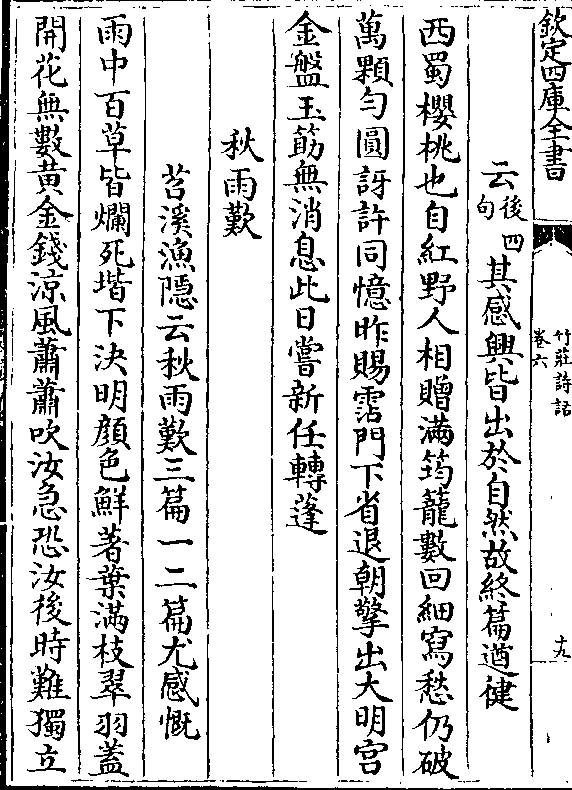 欽定四庫全書
竹莊詩話
卷六
十九
云後四句其感興皆出於自然故終篇遒健
西蜀櫻桃也自紅野人相贈滿筠籠數回細寫愁仍破
萬顆勻圓訝許同憶昨賜霑門下省退朝擎出大明宫
金盤玉筯無消息此日嘗新任轉蓬
秋雨歎
苕溪漁隱云秋雨歎三篇一二篇尤感慨
雨中百草皆爛死堦下決明顔色鮮著葉滿枝翠羽蓋
開花無數黄金錢涼風蕭蕭吹汝急恐汝後時難獨立